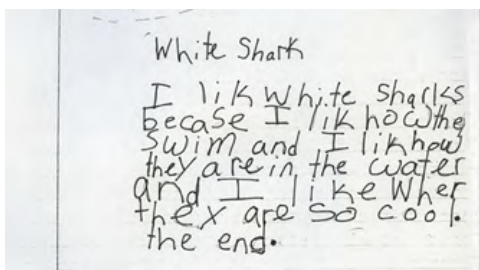 White Shark
I lik white sharks
becase I lik how the
swim and I lik how
they are in the water
and I like wher
thex are so cool.
the end.